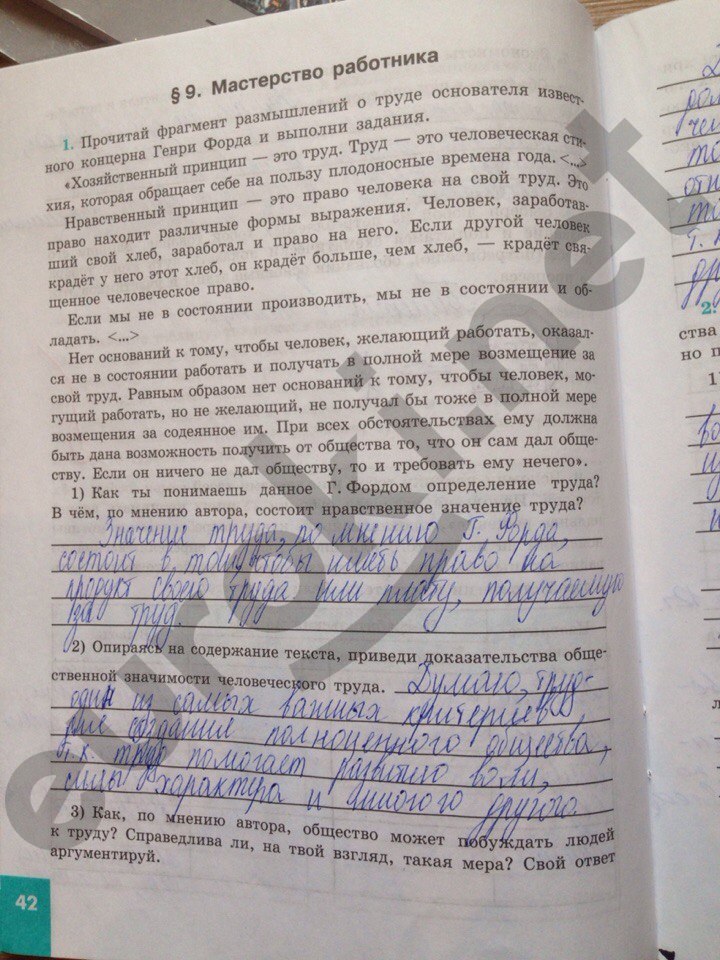 § 9. Мастерство работника
1. Прочитай фрагмент размышлений о труде основателя извест-
ного концерна Генри Форда и выполни задания.
«Хозяйственный принцип — это труд. Труд — это человеческая сти-
хия, которая обращает себе на пользу плодоносные времена года. <...>
Нравственный принцип — это право человека на свой труд. Это
право находит различные формы выражения. Человек, заработав-
ший свой хлеб, заработал и право на него. Если другой человек
крадёт у него этот хлеб, он крадёт больше, чем хлеб, — крадёт свя-
щенное человеческое право.
Если мы не в состоянии производить, мы не в состоянии и об-
ладать. <...>
Нет оснований к тому, чтобы человек, желающий работать, оказал-
ся не в состоянии работать и получать в полной мере возмещение за
свой труд. Равным образом нет оснований к тому, чтобы человек, мо-
гущий работать, но не желающий, не получал бы тоже в полной мере
возмещения за содеянное им. При всех обстоятельствах ему должна
быть дана возможность получить от общества то, что он сам дал обще-
ству. Если он ничего не дал обществу, то и требовать ему нечего».
1) Как ты понимаешь данное Г. Фордом определение труда?
В чём, по мнению автора, состоит нравственное значение труда?
Значение труда, по мнению Г. Форда,
состоит в том, чтобы иметь право на
продукт своего труда или плату, получаемую
за труд.
2) Опираясь на содержание текста, приведи доказательства обще-
ственной значимости человеческого труда. Думаю, труд-
один из самых важных критериев
для создания полноценного общества,
т.к. труд помогает развитию воли,
силы характера и многого другого.
3) Как, по мнению автора, общество может побуждать людей
к труду? Справедлива ли, на твой взгляд, такая мера? Свой ответ
аргументируй.
42
euroki.net
2.
ства
но п
1